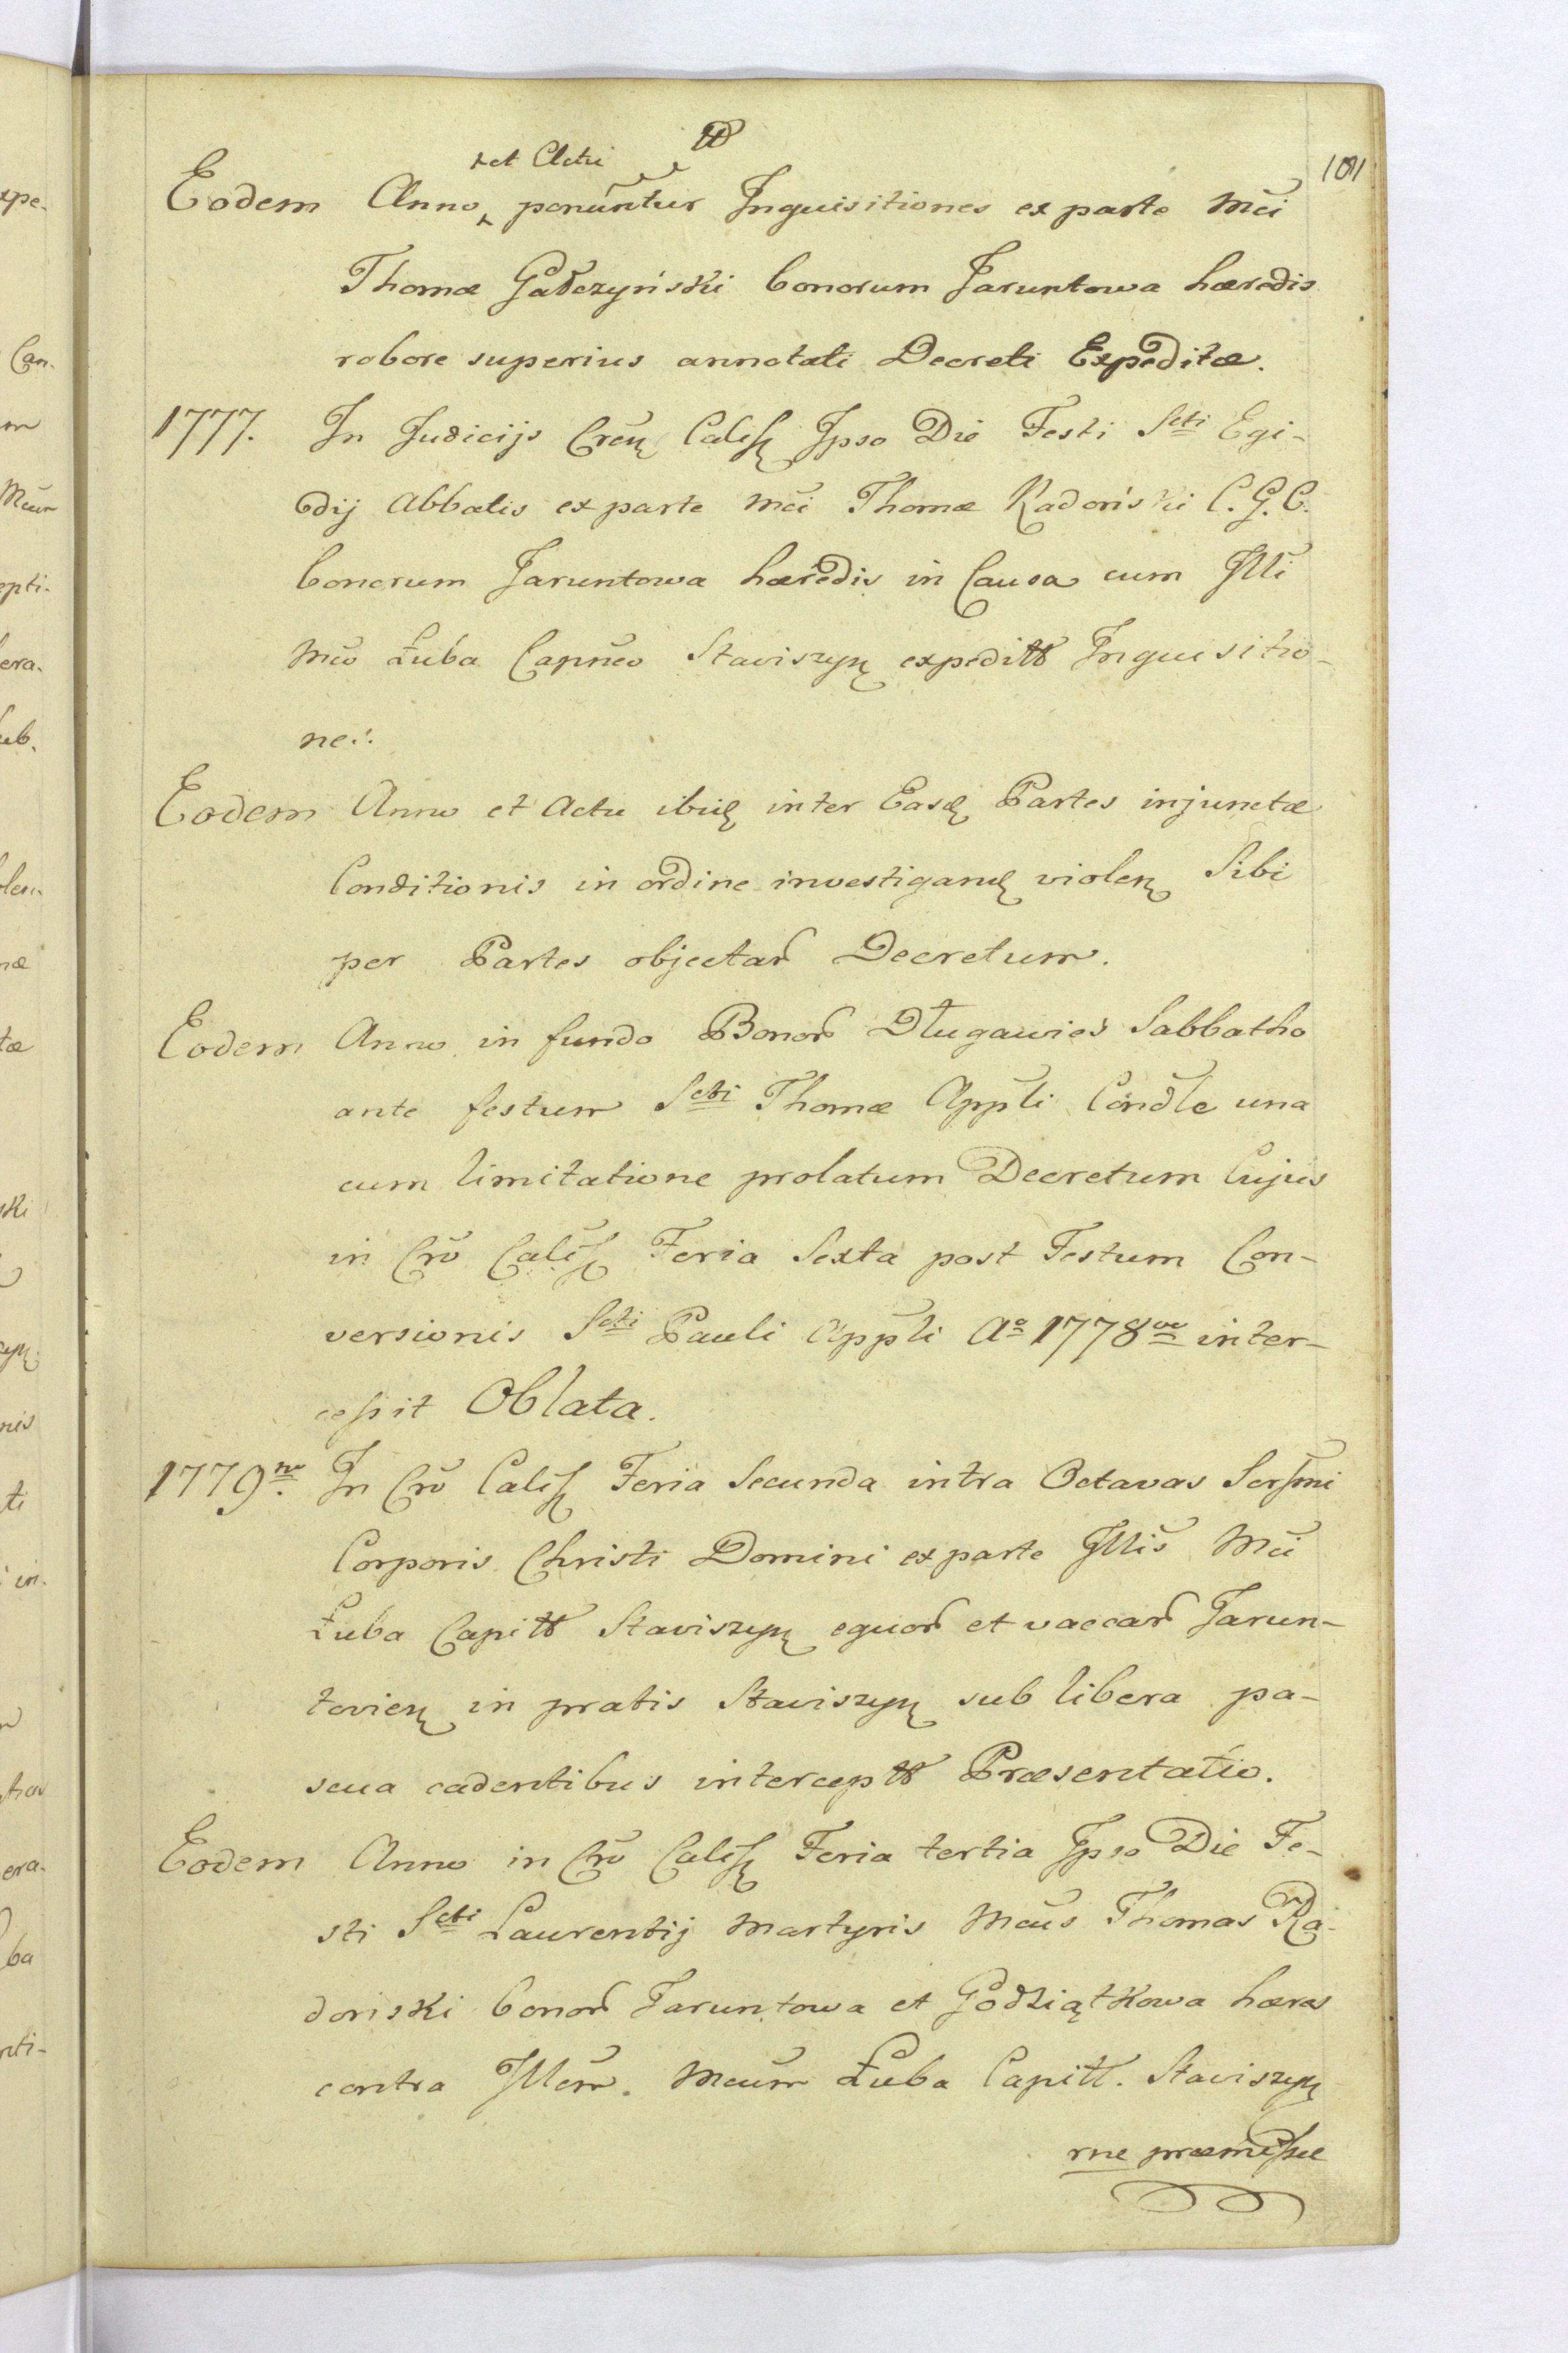 101
et Actu
Eodem Anno ponuntur Inquisitiones ex parte Mci
Thomæ Gałczyński bonorum Jaruntowa hæredis
robore superius annotati Decreti Expeditæ.
1777. In Judicijs Cren Calis Ipso Die Festi Scti Egi-
dij Abbatis ex parte Mci Thomæ Radoński C. G. C.
bonorum Jaruntowa hæredis in Causa cum Illi
Mco Łuba Capneo Staviszyn expeditt Inquisitio-
nes.
Eodem Anno et Actu ibid inter Easd Partes injunctæ
Conditionis in ordine investigand violen Sibi
per Partes objectar Decretum.
Eodem Anno in fundo Bonor Długawieś Sabbatho
ante festum Scti Thomæ Appli Condle una
cum limitatione prolatum Decretum Cujus
in Cro Calis Feria Sexta post Festum Con-
versionis Scti Pauli Appli Ao 1778vo inter-
cessit Oblata.
1779no. In Cro Calis Feria Secunda intra Octavas Serssmi
Corporis Christi Domini ex parte Illis Mci
Łuba Capitt Staviszyn equor et vaccar Jarun-
tovien in pratis Staviszyn sub libera pa-
scua cadentibus interceptt Præsentatio.
Eodem Anno in Cro Calis Feria tertia Ipso Die Fe-
sti Scti Laurentij Martyris Mcus Thomas Ra-
doński bonor Jaruntowa et Godziątkowa hæres
contra Illem. Mcum Łuba Capitt. Staviszyn
rne præmissæ